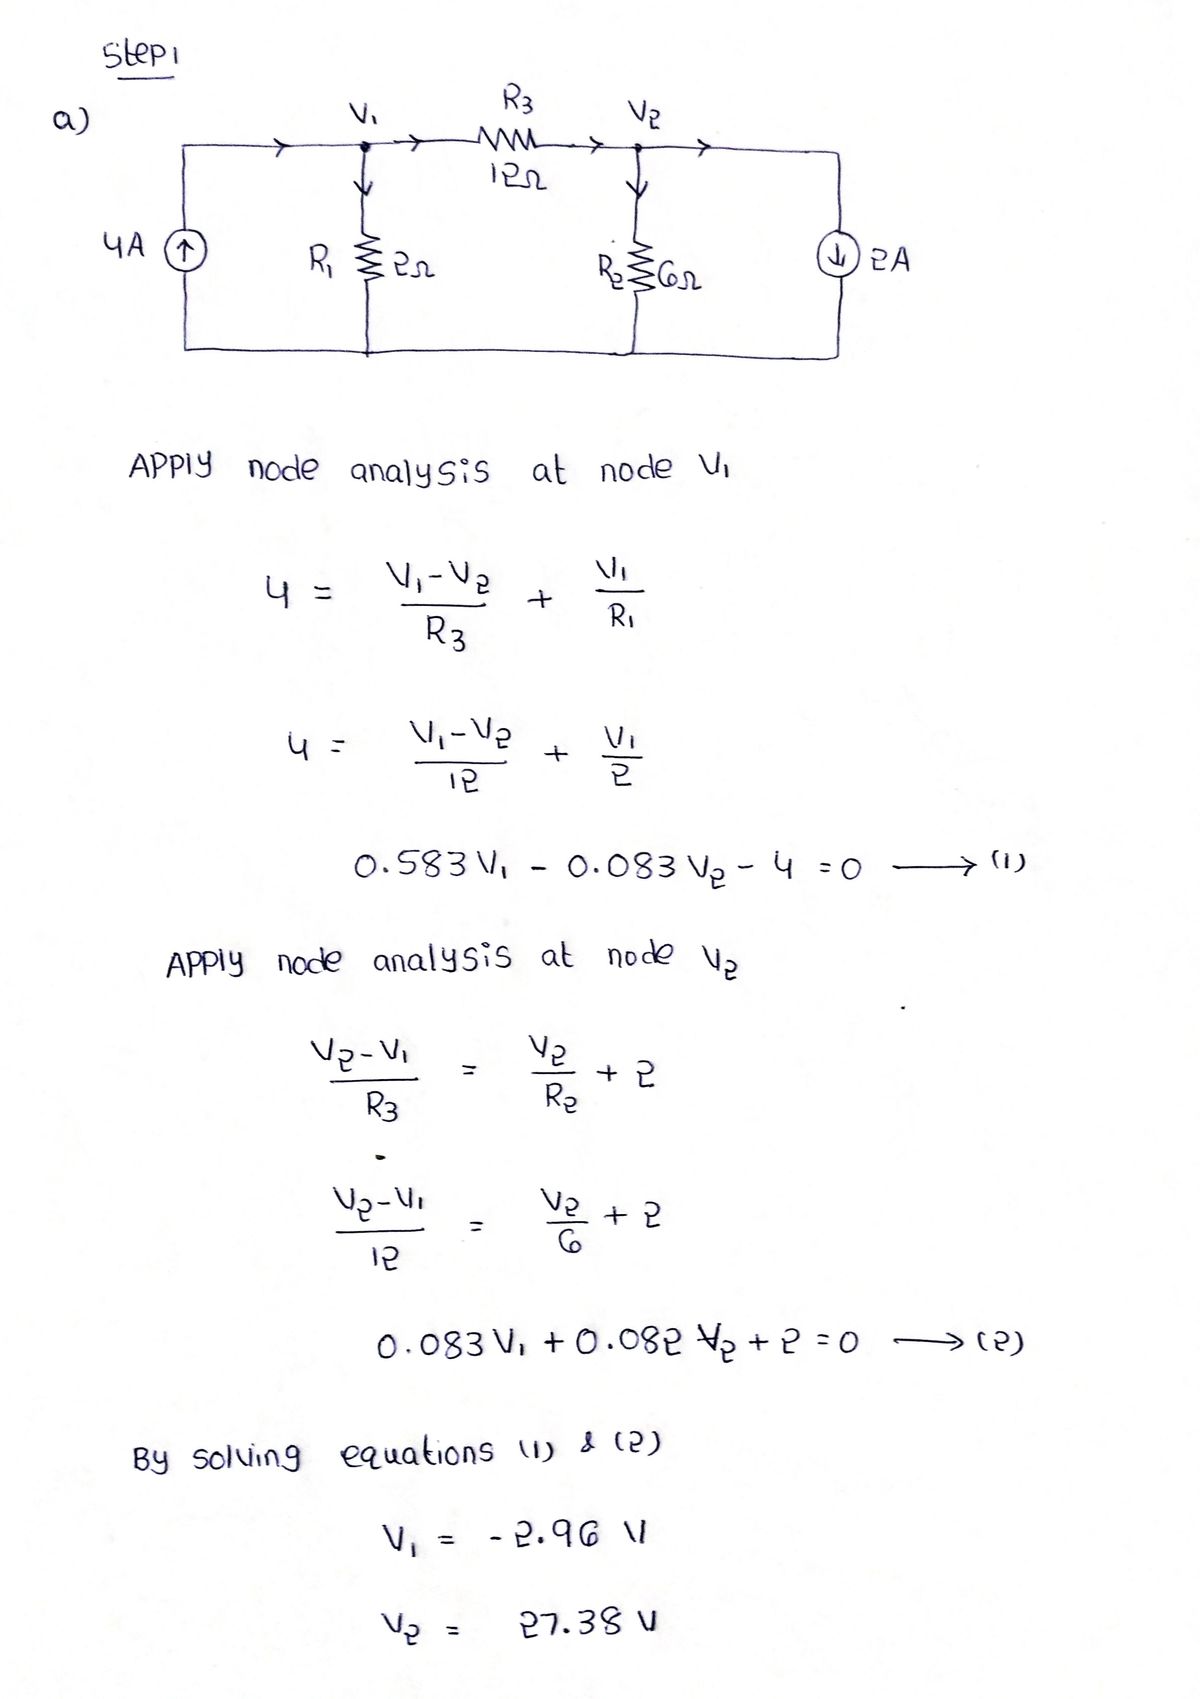 Step1
a)
V₁ R₃ V₂
12Ω
4A R₁ 2Ω R₂ 6Ω 2A
Apply node analysis at node V₁
4 = (V₁-V₂)/R₃ + V₁/R₁
4 = (V₁-V₂)/12 + V₁/2
0.583V₁ - 0.083V₂ - 4 = 0 ⟶ (1)
Apply node analysis at node V₂
(V₂-V₁)/R₃ = V₂/R₂ + 2
(V₂-V₁)/12 = V₂/6 + 2
0.083V₁ + 0.082V₂ + 2 = 0 ⟶ (2)
By solving equations (1) & (2)
V₁ = -2.96 V
V₂ = 27.38 V